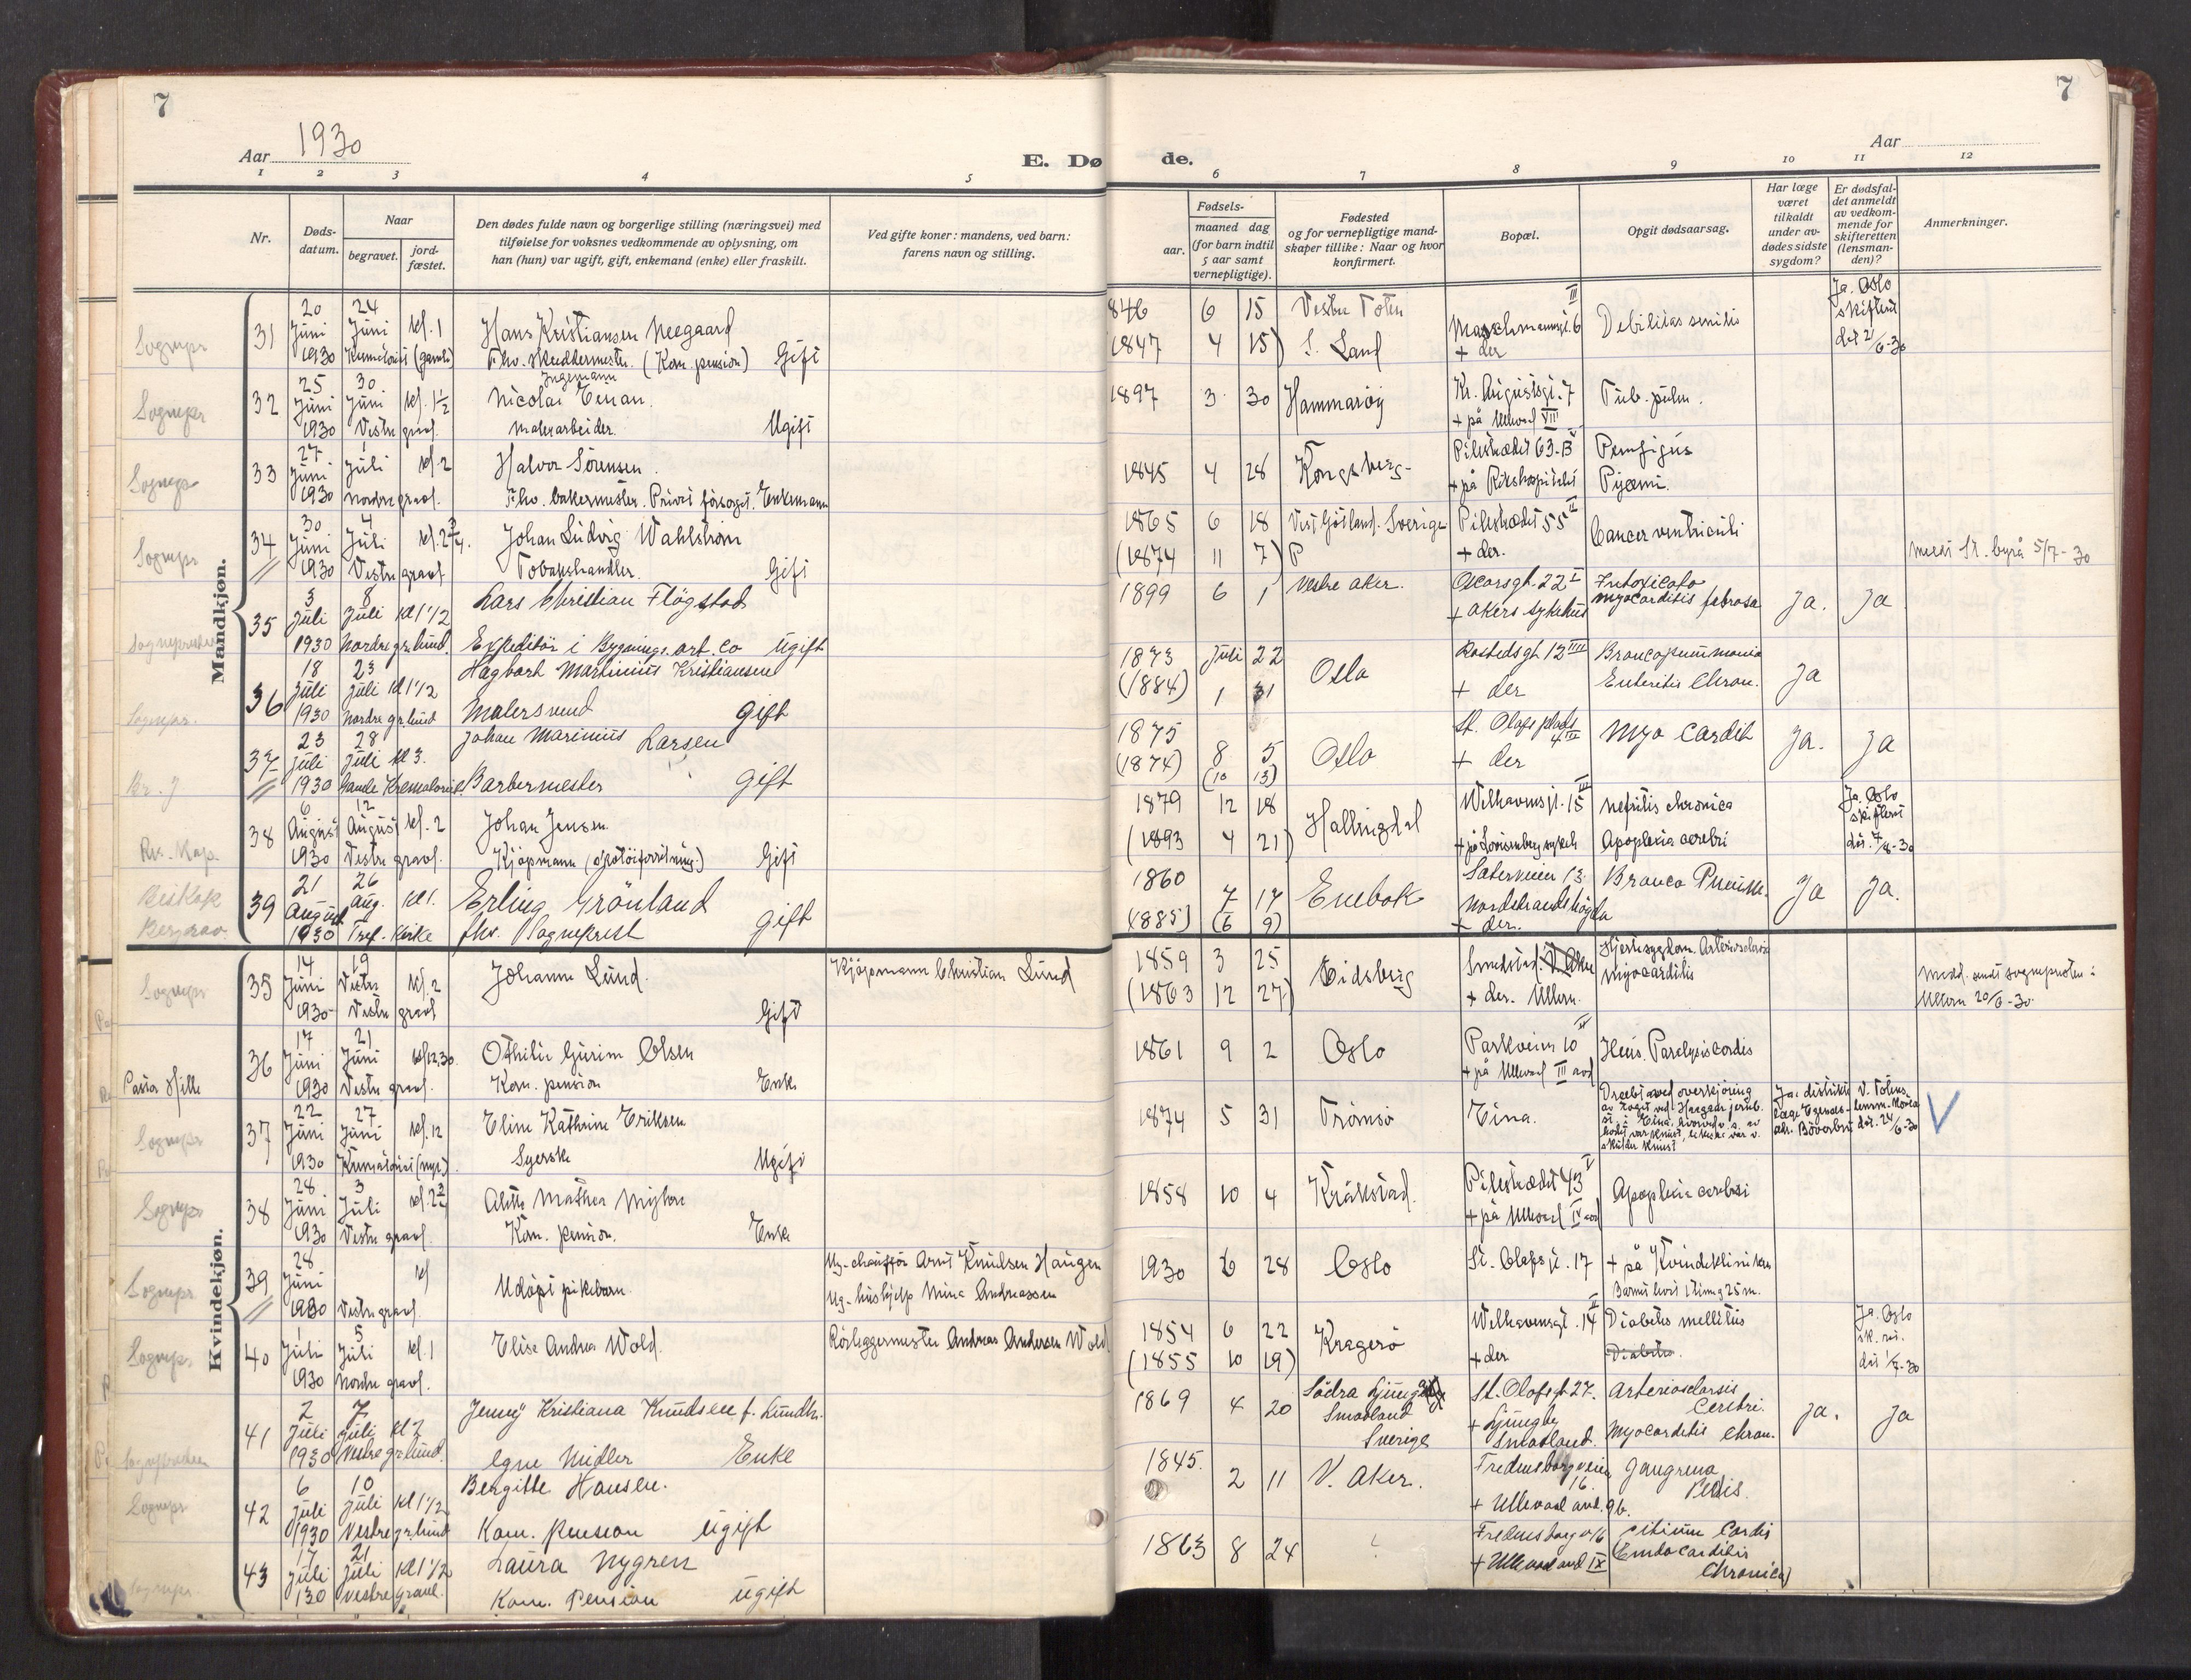 7
7
Aar 1930
E. Dø de.
Aar
1 2 3 4 5 6 7 8 9 10 11 12
Nr.
Døds-
datum.
Naar
begravet.
jord-
fæstet.
Den dødes fulde navn og borgerlige stilling (næringsvei) med
tilføielse for voksnes vedkommende av oplysning, om
han (hun) var ugift, gift, enkemand (enke) eller fraskilt.
Ved gifte koner: mandens, ved barn:
farens navn og stilling.
Fødsels-
aar.
maaned dag
(for barn indtil
5 aar samt
vernepligtige).
Fødested
og for vernepligtige mand-
skaper tillike: Naar og hvor
konfirmert.
Bopæl.
Opgit dødsaarsag.
Har læge
været
tilkaldt
under av-
dødes sidste
sygdom?
Er dødsfal-
det anmeldt
av vedkom-
mende for
skifteretten
(lensman-
den)?
Anmerkninger.
Mandkjøn.
Sognepr
31
20 24
Juni Juni kl. 1 Hans Kristiansen Neegaard
1930 (gamle) Fhv. skreddermester. (Kom. pension) Gift
846 6 15 Vestre Toten III
1847 4 15) S. Land + der
Debilitas senilis
Ja. Oslo
skifterett
21/6-30
Sognepr
32
25 30 Ingemann
Juni Juni kl. 1½ Nicolai Einan.
1930 Vestre gravl. malerarbeider. Ugift
1897 3 30 Hammarøy Kr. Augustsgt. 7 Tub. pulm.
+ på Ullevål VII
Sognepr
33
27 1
Juni Juli kl. 2 Halvor Sørensen.
1930 Nordre gravl. Fhv. bakermester. Privat forsørget. Enkemann
1845 4 28 Kongsberg Pilestrædet 63 B Pemfigus
+ på Rikshospitalet Pyæmi.
Sognepr
34
30 4
Juni Juli kl. 2¾. Johan Ludvig Wahlstrøm
1930 Vestre gravl. Tobakshandler. Gift
1865 6 18 Vest Götland. Sverige Pilestrædet 55 II Cancer ventriculi
(1874 11 7) + der.
Medd St. byrå 5/7-30
Sogneprester
35
3 8
Juli Juli kl 1½ Lars Christian Flögstad
1930 Nordre gr. lund. Expeditör i Bygnings. art. Co Ugift
1899 6 1 Vestre Aker. Oscarsgt. 22 I Intoxicatio
+ Akers sykehus Myocarditis fibrosa ja. ja
Sognepr.
36
18 23
Juli Juli kl 1½ Hagbart Martinius Kristiansen
1930 Nordre gr. lund Malersvend Gift
1873 Juli 22 Oslo Rostedsgt. 12 IIII Broncopneumonia
(1884) 1 31 + der Enteritis Chron. ja
Kr. J
37
23 28
Juli Juli kl 3. Johan Marinius Larsen
1930 Gamle Krematoriet. Barbermester Gift
1875 8 5 Oslo St. Olafs plads 4 III Myo Cardit ja. ja
(1874) (10 13) + der
38
6 12
August August kl. 2 Johan Jensen
1930 Vestre gravl. Kjøpmann Gift
1879 12 18 Hallingdal Welhavensgt. 15 III Nefritis chronica
(1893 4 21) + på Lovisenberg sykeh Apoplexia cerebri
Ja. Oslo
skifterett
7/8-30
Biskop
Berggrav
39
21 26
August aug. kl 1. Erling Grönland
1930 Tref. Kirke fhv. Sogneprest Gift
1860 7 17 Enebak Sæterveien 13 Bronco Pneum.
(1885) (6 9) Nordstrandshögda + der. Ja Ja.
Kvindekjøn.
Sognepr
35
14 19
Juni Vestre kl. 2 Johanne Lund. Kjøpmann Christian Lund
1930 Vestre gravl Gift
1859 3 25 Eidsberg Smestad. V. Aker Hjertesygdom. Arteriosclerosis
(1863 12 27) + der. Ullern. Myocarditis
Medd. sendt sognepresten i
Ullern 20/6-30.
Pastor Hille
36
17 21
Juni Juni kl 12,30 Othilie Gurine Olsen
1930 Vestre gravl. Kom. pension Enke
1861 9 2 Oslo Parkveien 10 Ileus. Paralysis cordis
+ på Ullevål III avd
Sognepr
37
22 27
Juni Juni kl. 12 Eline Kathrine Eriksen
1930 (nye) Syerske Ugift
1874 5 31 Tromsø Eina.
Dræbt ved overkjøring
av toget ved Haagaar jernb.
st. i Eina.
Ja. distrikts
læge V. Totens
24/6-30
Sognepr
38
28 3
Juni Juli kl. 2¾ Alette Mathea
1930 Vestre gravl. Kom. pension. Enke
1858 10 4 Kråkstad. Pilestrædet 43 V Apoplexia cerebri
+ på Ullevål IV avd
Sognepr
39
28
Juni kl Udöpt pikebarn.
1930 Vestre gravl.
Ug. chauffør Arnt Knudsen Haugen
Ug. hushjelp Mina Andreassen
1930 6 28 Oslo St. Olafs gt. 17 + på Kvindeklinikken
Barnet levet 1 time 25 m.
Sognepr
40
1 5
Juli Juli kl. 1 Elise Andrea Wold. Rørlæggermester Andreas Andersen Wold
1930 Nordre gravl.
1854 6 22 Kragerø Welhavensgt. 14 II Diabetes mellitus
(1855 10 19) + der Diabetes.
Ja. Oslo
sk. ret.
1/7-30
41
2 7
Juli Juli kl 2 Jenny Kristiana Knudsen f. Lundh.
1930 Vestre gr. lund. Egne Midler Enke
1869 4 20 Södra Ljunga
Smaaland
Sverige
St. Olafsgt. 27. Arteriosclerosis
+ Ljungby Cerebri.
Smaaland. Myocarditis Chron. ja. ja
Sognepr
42
6 10
Juli Juli kl 1½ Bergitte Hansen.
1930 Vestre gr. lund Kom. Pension Ugift
1845. 2 11 V. Aker. Fredensborgveien Gangrena
16. Pedis.
+ Ullevaal avd. 9b.
Sognepr.
43
17 21
Juli Juli kl 1½ Laura Nygren
130 Vestre gravl. Kom. Pension Ugift
1863 8 24 ? Fredensborgv 16 Vitium Cordis
+ Ullevaal avd IX (Endocarditis
Chronica)